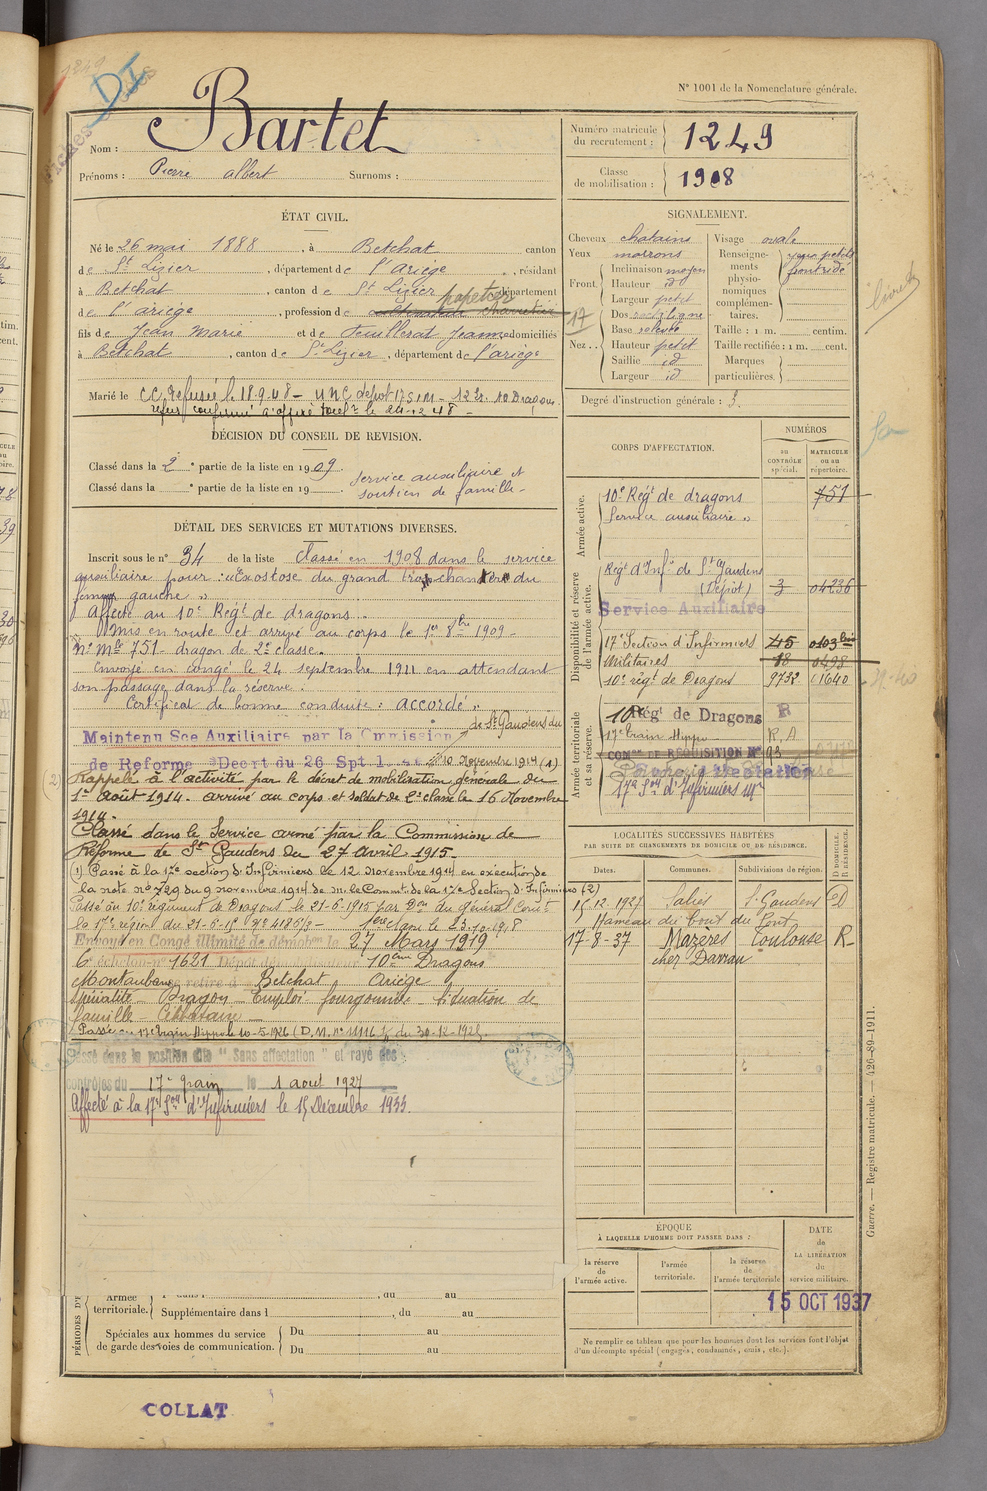 1249
DI
N° 1001 de la Nomenclature générale.
Nom : Bartet
Prénoms : Pierre albert Surnoms :
Numéro matricule du recrutement : 1249
Classe de mobilisation : 1908
ÉTAT CIVIL.
Né le 26 mai 1888, à Betchat canton
de St Lizier, département de l'Ariège, résidant
à Betchat, canton de St Lizier département
papetier
de l'ariège, profession de
fils de Jean Marie et de Jeanne domiciliés
à Betchat, canton de St Lizier, département de l'ariège
Marié le CC Refusée le 18-9-48 - UNC depot 17 SIM - 12 Er. 10 Dragons
refus confirmé le 24-12-48 -
SIGNALEMENT.
Cheveux chatains
Yeux marrons
Front
Inclinaison moyen
Hauteur id
Largeur petit
Nez
Dos rectiligne
Base relevée
Hauteur petit
Saillie id
Largeur id
Visage ovale
Renseignements physionomiques complémentaires. yeux petits front ridé
Taille : 1 m. centim.
Taille rectifiée : 1 m. cent.
Marques particulières.
Degré d'instruction générale : 3.
17
livret
DÉCISION DU CONSEIL DE REVISION.
Classé dans la 2e partie de la liste en 1909. service auxiliaire et
Classé dans la e partie de la liste en 19 soutien de famille-
DÉTAIL DES SERVICES ET MUTATIONS DIVERSES.
Inscrit sous le n° 34 de la liste Classé en 1908 dans le service
auxiliaire pour : Exostose du grand trochanter du
fémur gauche ".
Affecté au 10e Régt de dragons.
Mis en route et arrivé au corps le 1er 8bre 1909-
N° Mle 751 - dragon de 2e classe.
Envoyé en congé le 24 septembre 1911 en attendant
son passage dans la réserve.
Certificat de bonne conduite : accordé ".
de St Gaudens du
Maintenu Sce Auxiliaire par la Commission
de Reforme Decrt du 26 Spt 10 Novembre 1914 (1)
(2) Rappelé à l'activité par le décret de mobilisation générale du
1er août 1914. arrivé au corps et soldat de 2e classe le 16 Novembre
1914.
Classé dans le Service armé par la Commission de
Réforme de St Gaudens du 27 avril 1915-
(1) Passé à la 17e section d'Infirmiers le 12 Novembre 1914 en exécution de
la note n° 729 du 9 novembre 1914 de M. le Commt de la 17e Section d'Infirmiers (2)
Passé au 10e régiment de Dragons le 21-6-1915 par Don du Général Comt
la 17e région du 21-6-15 N° 4186/3 - 1ere classe le 23-10-1918
Envoyé en Congé illimité de démobon le 27 Mars 1919
6e échelon n° 1621 Dépôt démobilisateur 10ème Dragons
Montauban se retire à Betchat Ariège
Spécialité Dragon Emploi fourgonnier Situation de
famille Célibataire
Passé au 17e train Hippo le 10-5-1926 (D.M. n° 11116 du 30-12-1925
Passé dans la position dite " Sans affectation " et rayé des
contrôles du 17e Train le 1 aout 1927
Affecté à la 17e Son d'Infirmiers le 15 Décembre 1933.
CORPS D'AFFECTATION.
NUMÉROS
AU CONTRÔLE spécial.
MATRICULE ou au répertoire.
Armée active.
10e Régt de dragons 751
Service auxiliaire "
Disponibilité et réserve de l'armée active.
Régt d'Infie de St Gaudens
(Dépôt) 3 04236
Service Auxiliaire
17e Section d'Infirmiers 415 0103 bis
Militaires 18 0498
10e régt de Dragons 9732 01640
Armée territoriale et sa réserve.
10e Régt de Dragons R
17e train Hippo R.A
COMon DE RÉQUISITION N° 93
17e Son d'Infirmiers Mre
LOCALITÉS SUCCESSIVES HABITÉES
PAR SUITE DE CHANGEMENTS DE DOMICILE OU DE RÉSIDENCE.
Dates. Communes. Subdivisions de région. D DOMICILE. R RÉSIDENCE.
15.12.1927 Salies St Gaudens D
Hameau du Bout du Pont
17-8-37 Mazères Toulouse R-
chez Darran
ÉPOQUE
À LAQUELLE L'HOMME DOIT PASSER DANS :
la réserve de l'armée active.
l'armée territoriale.
la réserve de l'armée territoriale
DATE de LA LIBÉRATION du service militaire.
15 OCT 1937
Ne remplir ce tableau que pour les hommes dont les services font l'objet
d'un décompte spécial (engagés, condamnés, omis, etc.).
PÉRIODES D'E
Armée territoriale.
, du au
Supplémentaire dans l , du au
Spéciales aux hommes du service de garde des voies de communication.
Du au
Du au
Guerre. — Registre matricule. — 426-89-1911.
COLLAT